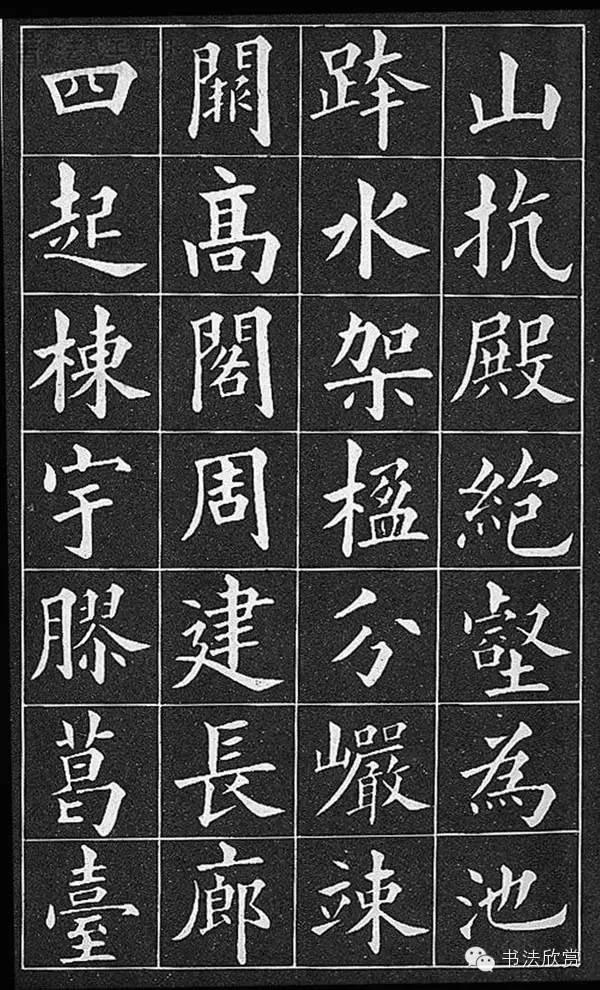 山抗殿絶壑為池
跨水架楹分巖竦
闕髙閣周建長廊
四起棟宇膠葛臺
书法欣赏